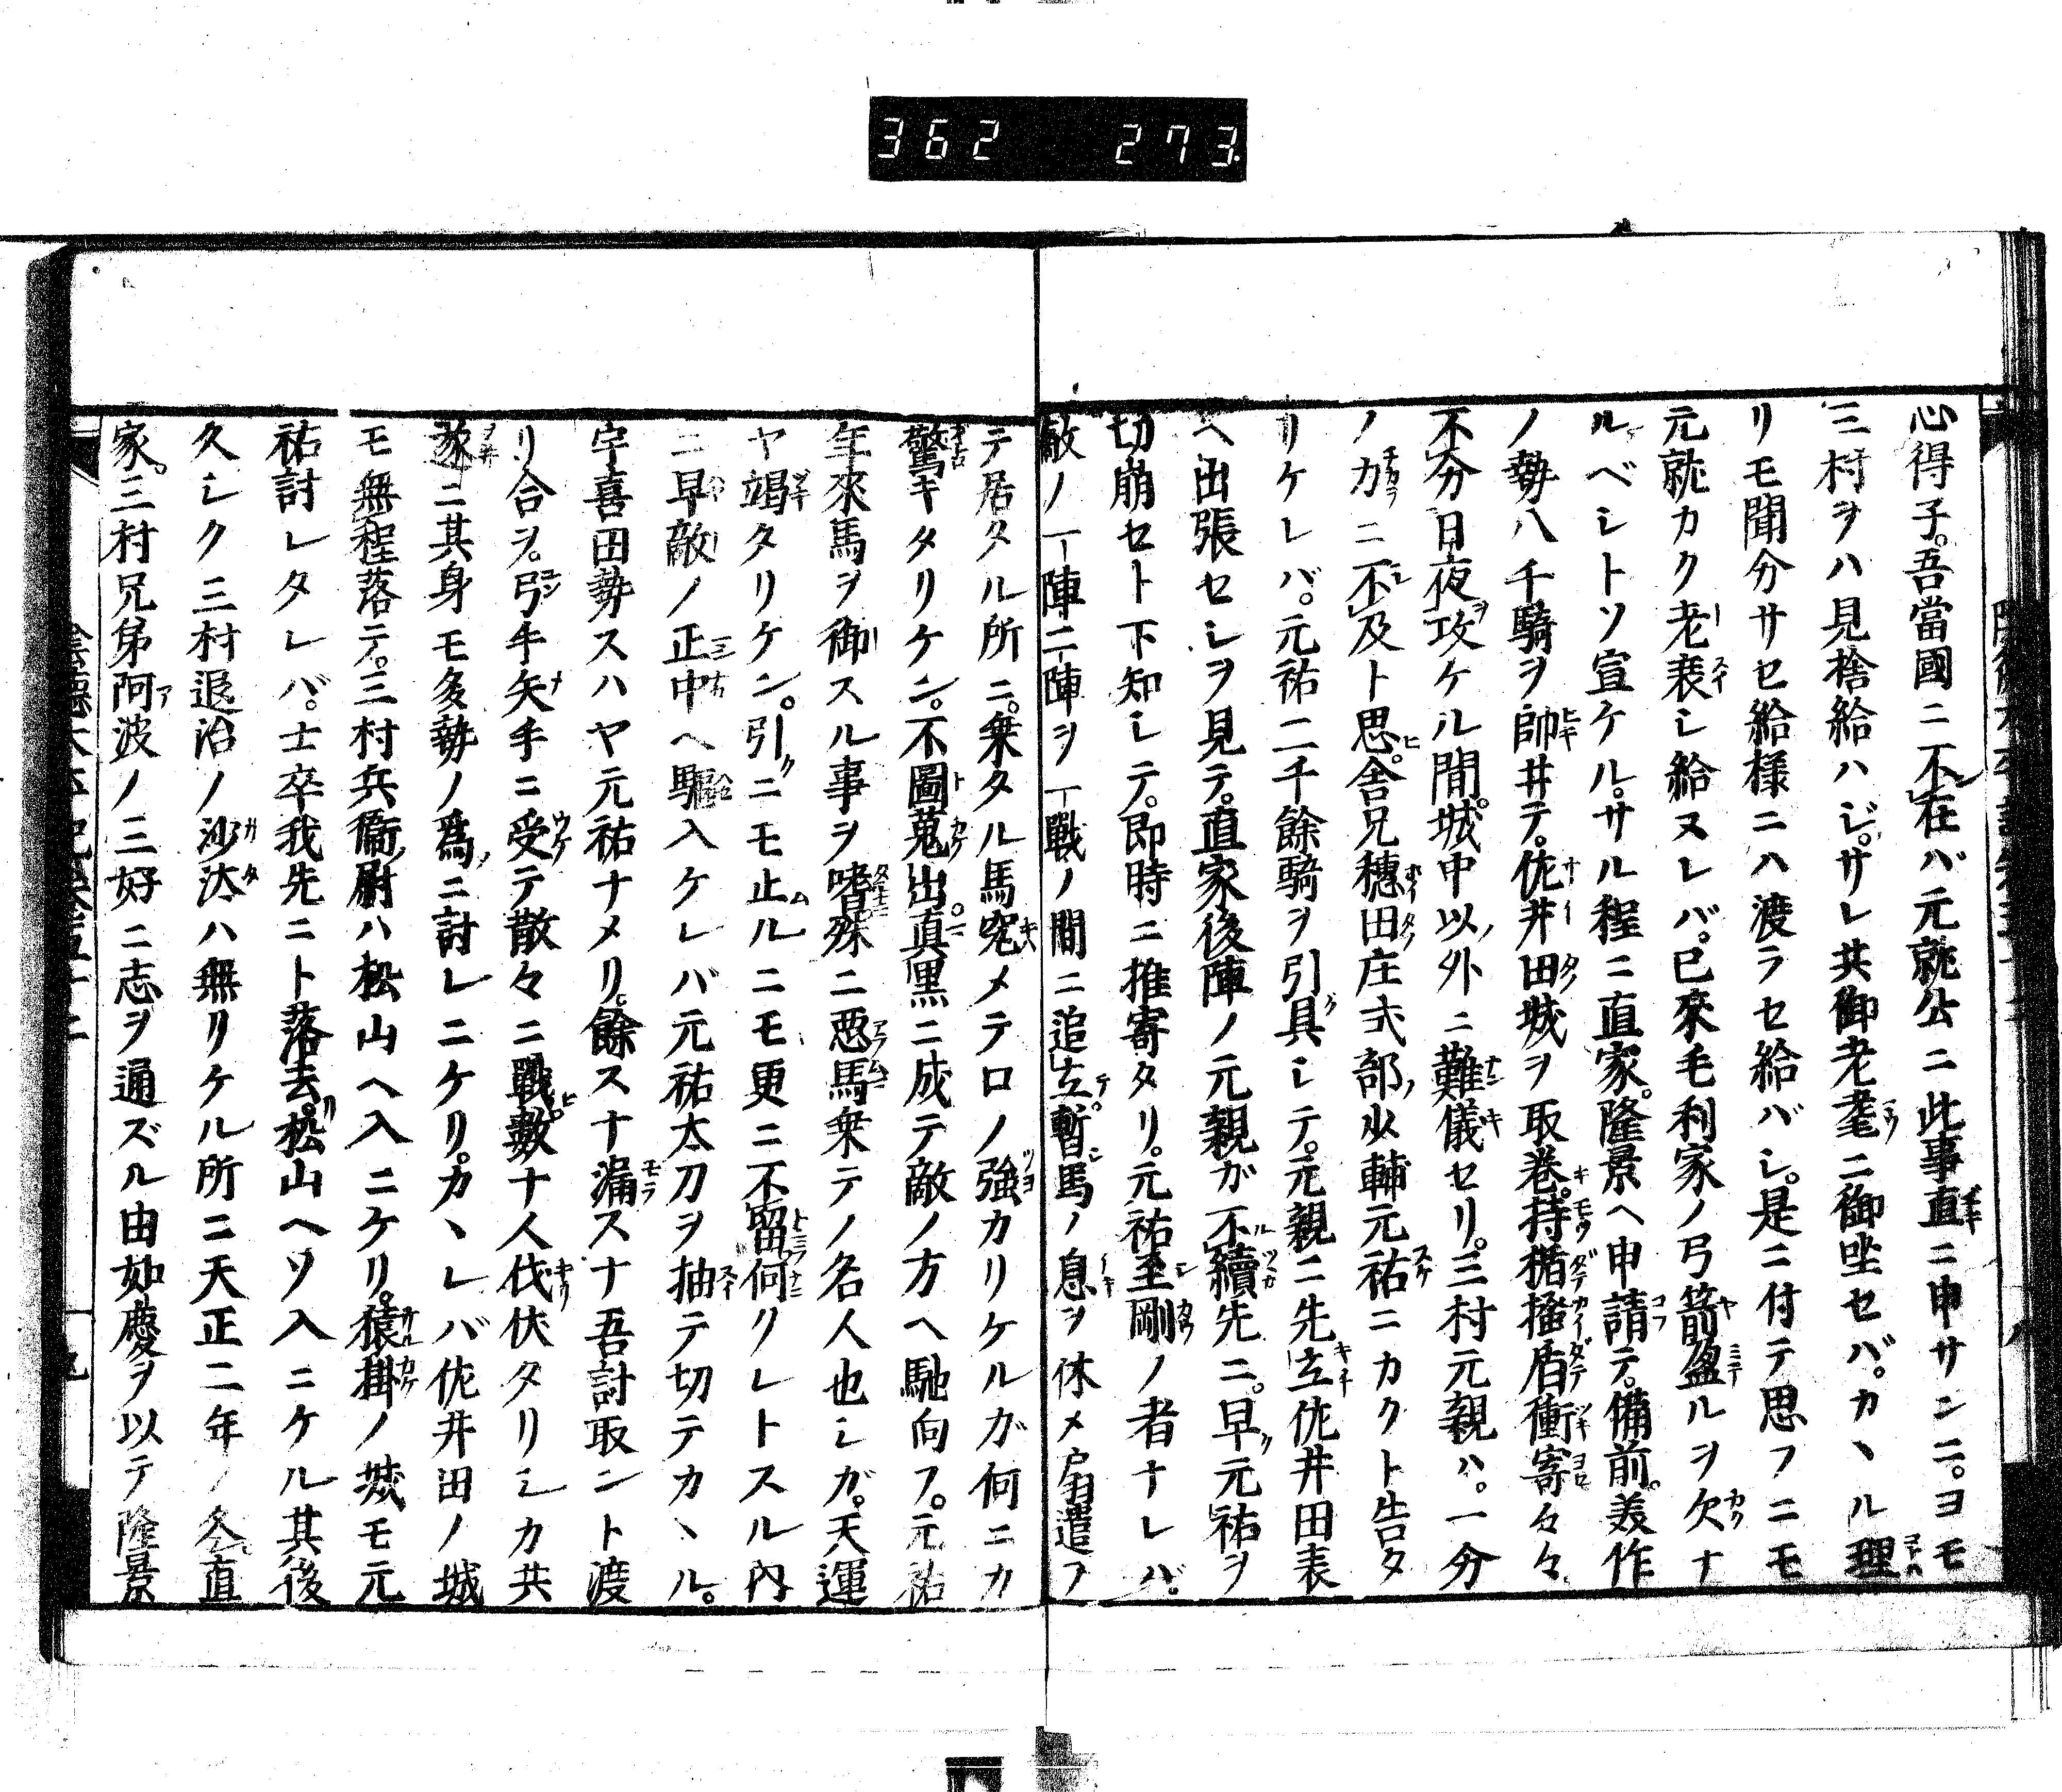 362 273
心得子。吾當國ニ不在バ元就公ニ此事直ニ申サンニ。ヨモ
三村ヲハ見捨給ハジ。サレ共御老耄ニ御坐セバ。カヽル理
リモ聞分サセ給様ニハ渡ラセ給バシ。是ニ付テ思フニモ
元就カク老衰シ給ヌレバ。已來毛利家ノ弓箭盈ルヲ欠ナ
ルベシトソ宣ケル。サル程ニ直家。隆景ヘ申請テ。備前。美作
ノ勢八千騎ヲ帥井テ。佐井田城ヲ取巻。持楯掻盾衝寄々々
不分日夜攻ケル間。城中以外ニ難儀セリ。三村元親ハ。一分
ノ力ニ不及ト思。舎兄穗田庄式部少輔元祐ニカクト告タ
リケレバ。元祐二千餘騎ヲ引具シテ。元親ニ先立佐井田表
ヘ出張セシヲ見テ。直家後陣ノ元親ガ不續先ニ。早元祐ヲ
切崩セト下知シテ。即時ニ推寄タリ。元祐至剛ノ者ナレバ。
敵ノ一陣二陣ヲ一戰ノ間ニ追立。暫馬ノ息ヲ休メ扇遣ヲ
テ居タル所ニ。乗タル馬究メテロノ強カリケルガ何ニカ
驚キタリケン。不圖蒐出。真黒ニ成テ敵ノ方ヘ馳向フ。元祐
年來馬ヲ御スル事ヲ嗜。殊ニ惡馬乗テノ名人也シガ。天運
ヤ竭タリケン。引ニモ止ルニモ更ニ不留。何クレトスル内
ニ早敵ノ正中ヘ驅入ケレバ元祐太刀ヲ抽テ切テカヽル。
宇喜田勢スハヤ元祐ナメリ。餘スナ漏スナ吾討取ント渡
リ合ヲ。弓手矢手ニ受テ散々ニ戰。數十人伐伏タリシカ共
遂ニ其身モ多勢ノ爲ニ討レニケリ。カヽレバ佐井田ノ城
モ無程落テ。三村兵衞尉ハ松山ヘ入ニケリ。猿掛ノ城モ元
祐討レタレバ。士卒我先ニト落去。松山ヘソ入ニケル其後
久シク三村退治ノ沙汰ハ無リケル所ニ天正二年ノ冬。直
家。三村兄弟阿波ノ三好ニ志ヲ通ズル由如慶ヲ以テ隆景